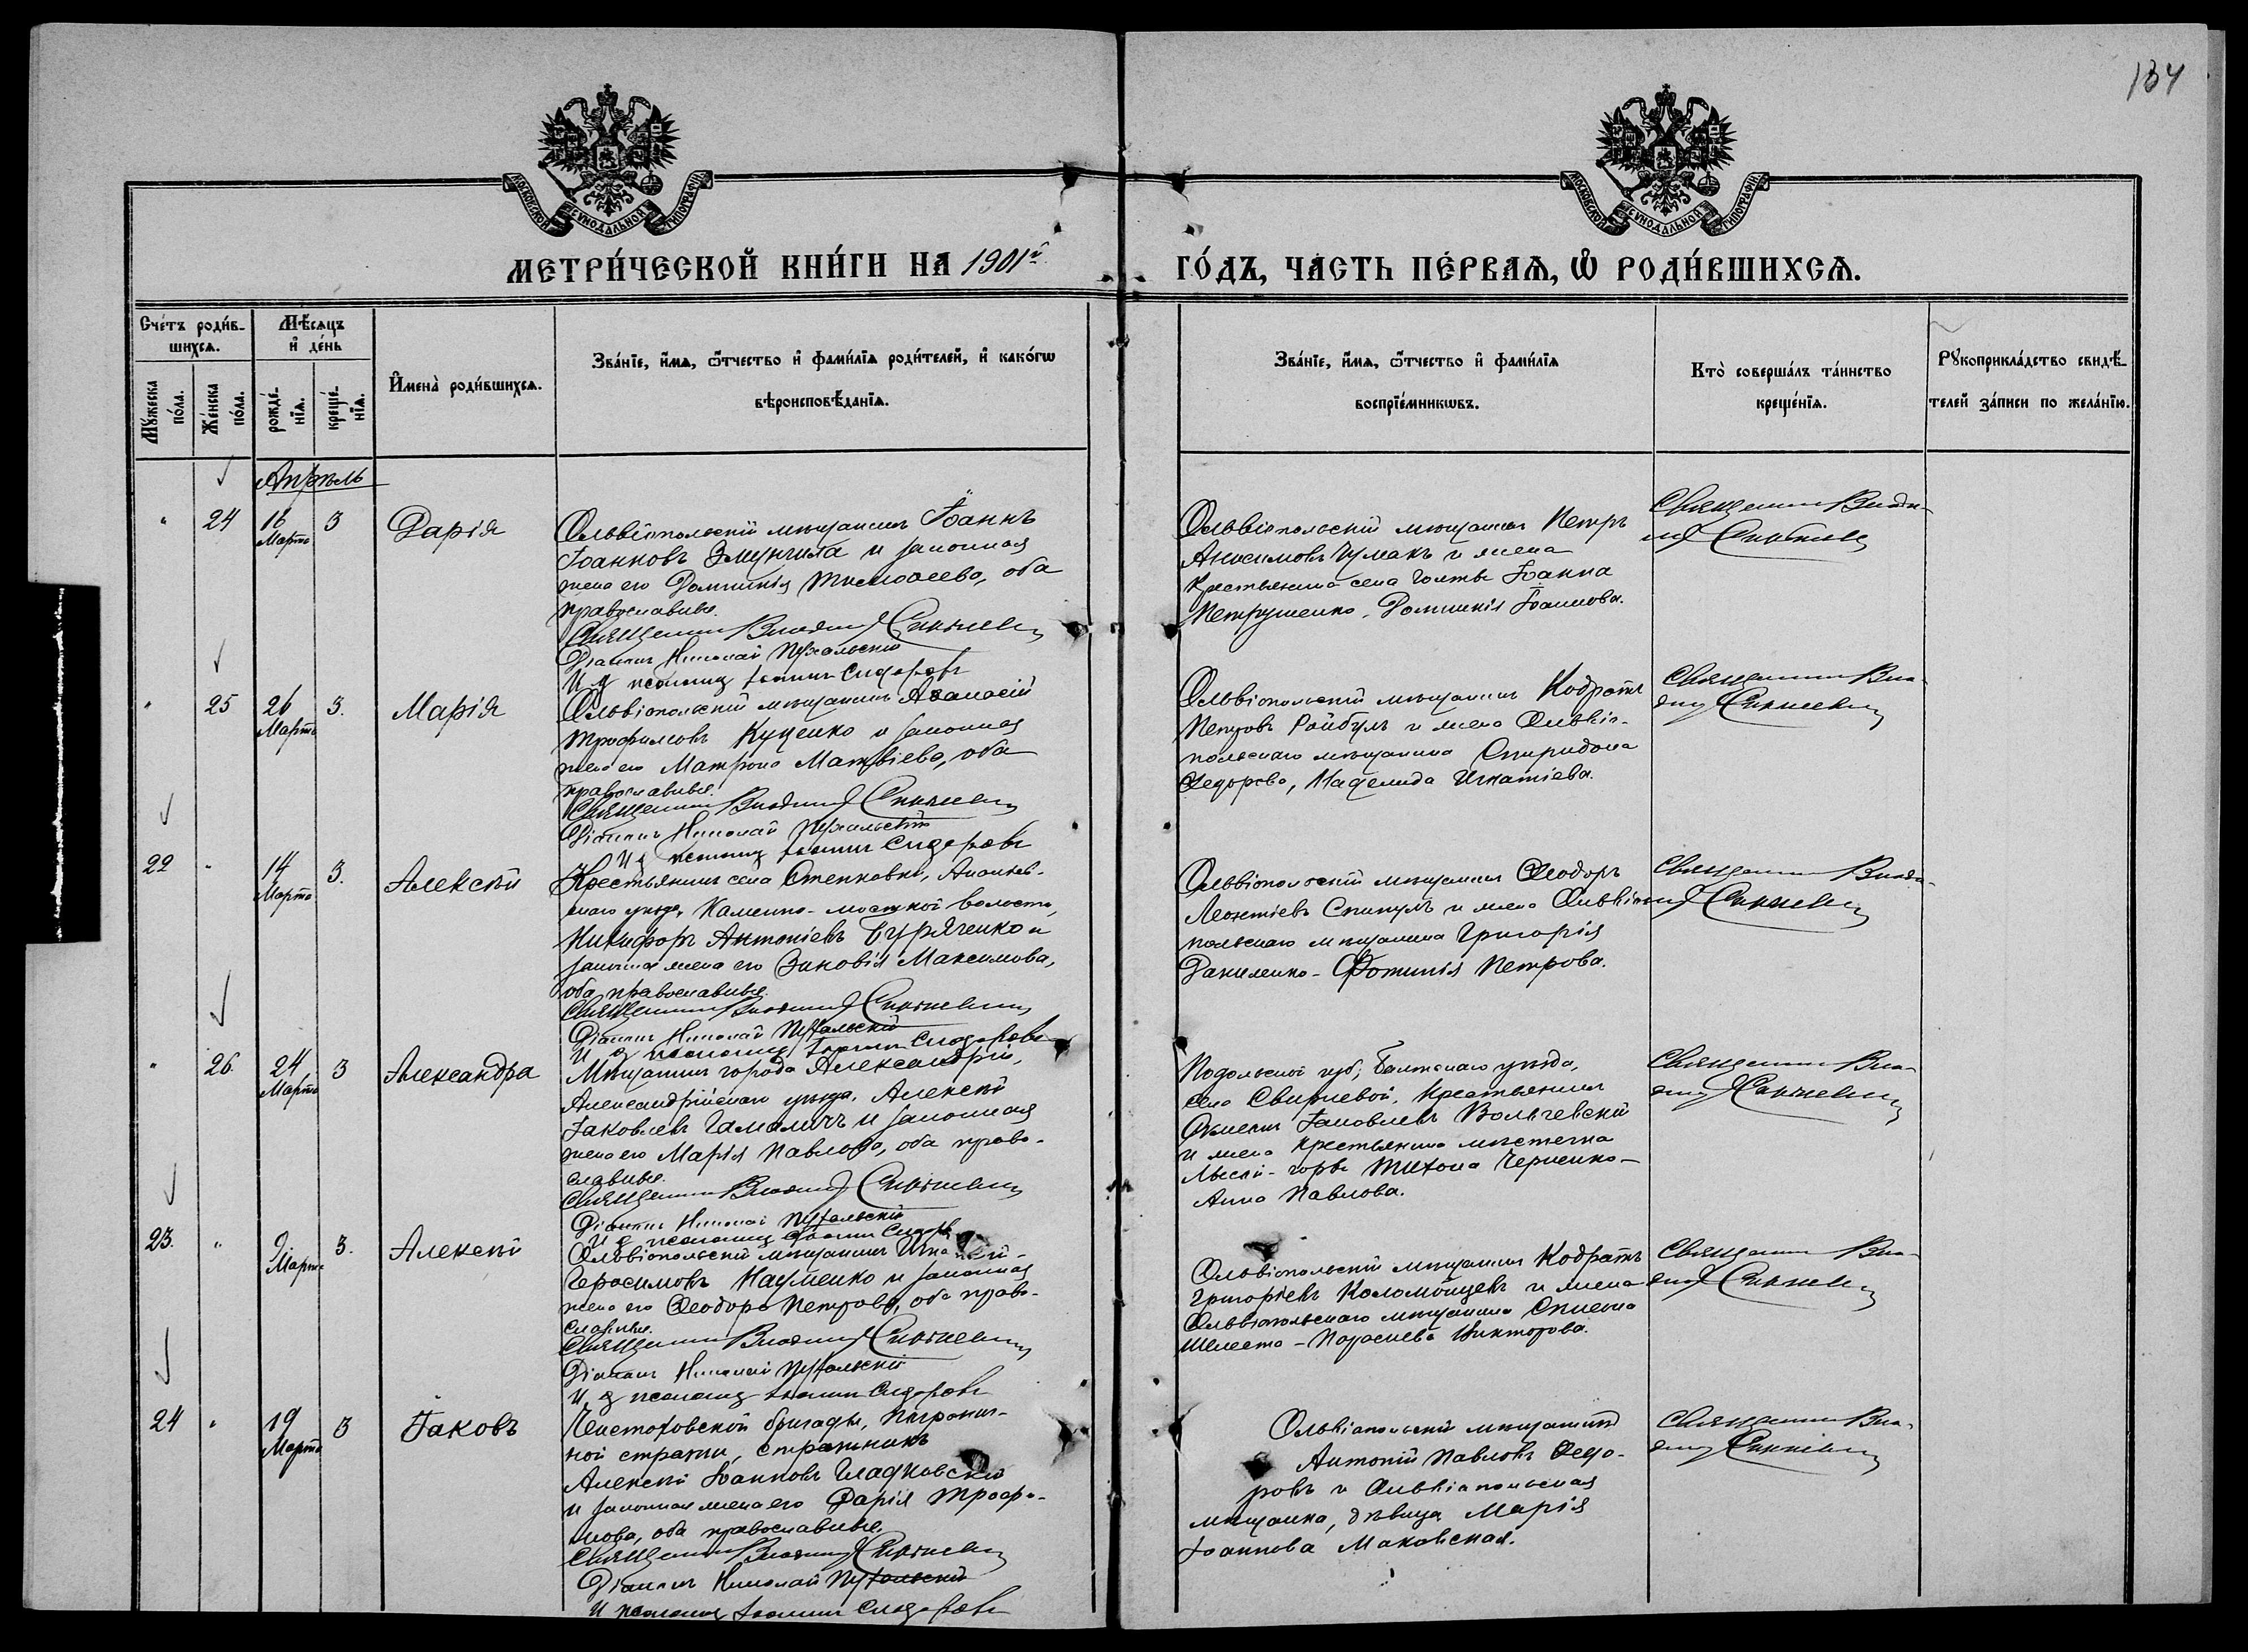 134
МОСКОВСКОЙ СУНОДАЛЬНОЙ ТИПОГРАФІИ
МОСКОВСКОЙ СУНОДАЛЬНОЙ ТИПОГРАФІИ
МЕТРИ́ЧЕСКОЙ КНИ́ГИ НА 1901й
ГО́ДЪ, ЧА́СТЬ ПЕ́РВАѦ, Ѡ РОДИ́ВШИХСѦ.
Сче́тъ роди́в-
шихсѧ.
Мѣ́сѧцъ
и де́нь
Мꙋ́жеска
по́ла.
Же́нска
по́ла.
рожде́-
нїѧ.
креще́-
нїѧ.
И҆мена̀ роди́вшихсѧ.
Зва́нїе, и҆́мѧ, ѻ҆́тчество и҆ фами́лїѧ роди́телей, и҆ како́гѡ
вѣроисповѣ́данїѧ.
Зва́нїе, и҆́мѧ, ѻ҆́тчество и҆ фами́лїѧ
воспрїе́мникѡвъ.
Кто̀ соверша́лъ та́инство
креще́нїѧ.
Рꙋкоприкла́дство свидѣ́-
телей за́писи по жела́нїю.
Апрѣль
" 24 16 Марта 3 Дарія
Ольвіопольскій мѣщанинъ Іоаннъ
Іоанновъ и законная
жена его Домникія Тимоѳеева, оба
православные.
Священникъ
Діаконъ Николай Пухальскій
И. д. псаломщ. Іоаннъ Сидоровъ
Ольвіопольскій мѣщанинъ Петръ
Анисимовъ Чумакъ и жена
крестьянина села Голты Іоанна
Петрушенко, Домникія Іоаннова.
Священникъ Влади-
" 25 26 Марта 3. Марія
Ольвіопольскій мѣщанинъ Аѳанасій
Трофимовъ Куценко и законная
жена его Матрона Матвіева, оба
православные.
Священникъ
Діаконъ Николай Пухальскій
И. д. псаломщ. Іоаннъ Сидоровъ
Ольвіопольскій мѣщанинъ Кодратъ
Петровъ Райбулъ и жена Ольвіо-
польскаго мѣщанина Спиридона
Ѳедорова, Игнатіева.
Священникъ Вла-
22 " 14 Марта 3. Алексѣй
Крестьянинъ села Степковки, Ананьев-
скаго уѣзда, Каменно-мостской волости,
Никифоръ Антоніевъ Буряченко и
законная жена его Зиновія Максимова,
оба православные.
Священникъ
Діаконъ Николай Пухальскій
И. д. псаломщ. Іоаннъ Сидоровъ
Ольвіопольскій мѣщанинъ Ѳеодоръ
Леонтіевъ и жена Ольвіо-
польскаго мѣщанина Григорія
Даниленко - Фотинія Петрова.
Священникъ Влади-
" 26. 24 Марта 3 Александра
Мѣщанинъ города Александріи,
Александрійскаго уѣзда, Алексѣй
Іаковлевъ Гамаличъ и законная
жена его Марія Павлова, оба право-
славные.
Священникъ
Діаконъ Николай Пухальскій
И. д. псаломщ. Іоаннъ Сидоровъ
Подольской губ., Балтскаго уѣзда,
села Свирневой, крестьянинъ
Іаковлевъ Вольчевскій
и жена крестьянина мѣстечка
Лысой-горы Тихона Черненко -
Анна Павлова.
Священникъ Вла-
23. " 9 Марта 3. Алексѣй
Ольвіопольскій мѣщанинъ Игнатій
Герасимовъ Науменко и законная
жена его Ѳеодора Петрова, оба право-
славные.
Священникъ
Діаконъ Николай Пухальскій
И. д. псаломщ. Іоаннъ Сидоровъ
Ольвіопольскій мѣщанинъ Кодратъ
Григоріевъ Коломойцевъ и жена
Ольвіопольскаго мѣщанина
Шелеста - Параскева Викторова.
Священникъ Вла-
24 " 19 Марта 3 Іаковъ
Ченстоховской бригады, погранич-
ной стражи, стражникъ
Алексѣй Іоанновъ Гладковскій
и законная жена его Дарія Трофи-
мова, оба православные.
Священникъ
Діаконъ Николай Пухальскій
И. д. псаломщ. Іоаннъ Сидоровъ
Ольвіопольскій мѣщанинъ
Антоній Павловъ Ѳедо-
ровъ и Ольвіопольская
мѣщанка, дѣвица Марія
Іоаннова Маковская.
Священникъ Вла-